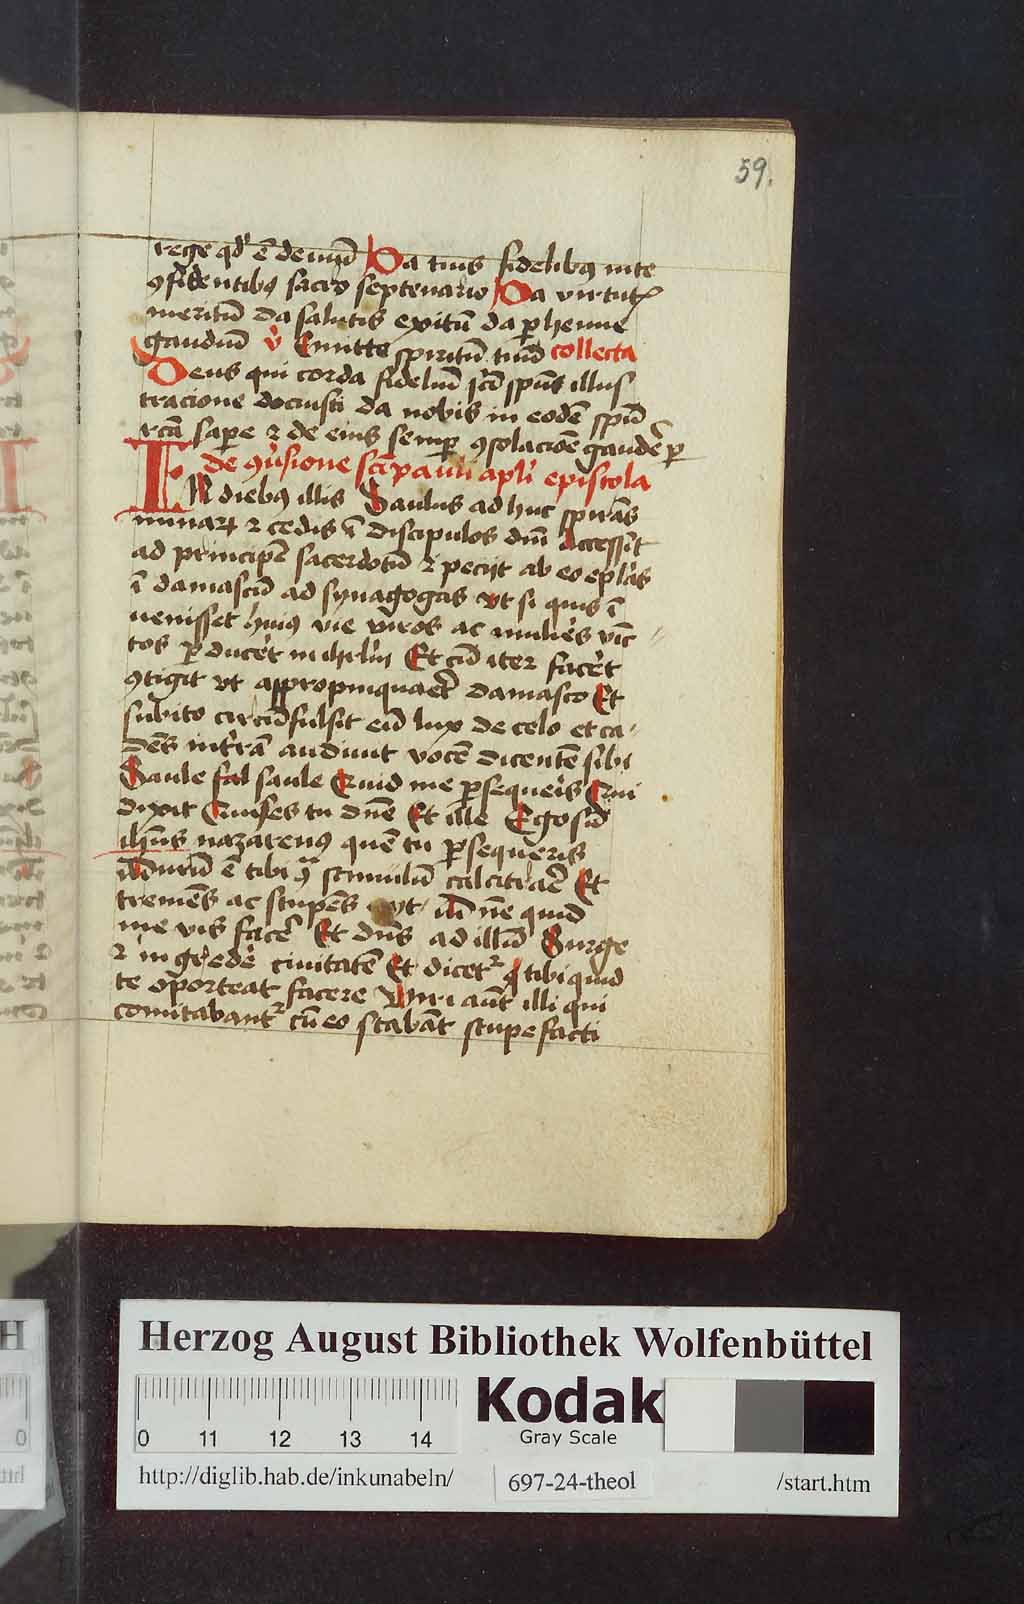 59.
rege qd' ē deuiū Da tuis fidelibꝰ in te
ꝯfidentibꝰ sacrꝰ septenariū Da virtutꝭ
meritū da salutis exitū da ꝑhenne
gaudiū v̓ Emitte spiritū tuū collecta
Deus qui corda fideliū sc̄i spūs illus
tracione docuisti da nobis in eodē spū
rcā saꝑe ⁊ de eius semꝑ ꝯsolacioē gaudē ꝑ
de ꝯūsione scī pauli apl'i epistola
IN diebꝰ illis Saulus ad huc spirās
minarꝝ ⁊ cedis ī discipulos dnī Accessit
ad principē sacerdotū ⁊ peciit ab eo ep'las
ī damascū ad synagogas vt si quis ī
uenisset huiꝰ vie viros ac mulie's vīc
tos ꝑduce't in ihrl'm Et cū iter face't
ꝯtigit vt appropinquaēt damasco Et
subito circūfulsit eū lux de celo et ca
dēs in t'rā audiuit vocē dicentē sibi
Saule sal saule Quid me ꝑsequeris Qui
dixit Quis es tu dn̄e Et ille Ego sū
ihūs nazarenꝰ quē tu ꝑsequeris
Durū ē tibi ꝯ̄ͣ stimulū calcitraē Et
tremēs ac stupēs yt dn̄e quid
me vis facē Et dn̄s ad illū Surge
⁊ ingrede ciuitatē Et dicetᷣ tibi quid
te oporteat facere Viri aūt illi qui
comitabantᷣ cū eo stabāt stupefacti
Herzog August Bibliothek Wolfenbüttel
0 11 12 13 14
Kodak
Gray Scale
http://diglib.hab.de/inkunabeln/
697-24-theol
/start.htm